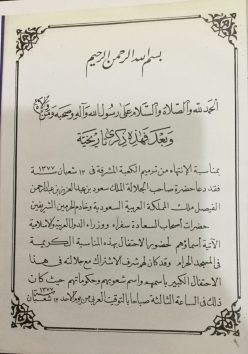 بسم الله الرحمن الرحيم
الحمد لله والصلاة والسلام على رسول الله وآله وصحبه ومن والاه
وبعد فهذه ذكرى تاريخية
بمناسبة الإنتهاء من ترميم الكعبة المشرفة في ١٢ شعبان ١٣٧٧ هـ
فقد دعا حضرة صاحب الجلالة الملك سعود بن عبد العزيز بن عبد الرحمن
الفيصل ملك المملكة العربية السعودية وخادم الحرمين الشريفين
حضرات أصحاب السعادة سفراء ووزراء الدول العربية والاسلامية
الآتية أسماؤهم لحضور الاحتفال بهذه المناسبة الكريمة
في المسجد الحرام وقد كان لهم شرف الاشتراك مع جلالته في هذا
الاحتفال الكبير باسمهم واسم شعوبهم وحكوماتهم حيث كان
ذلك في الساعة الثالثة صباحا بالتوقيت العربي من يوم الاحد ١٢ شعبان
١٣٧٧